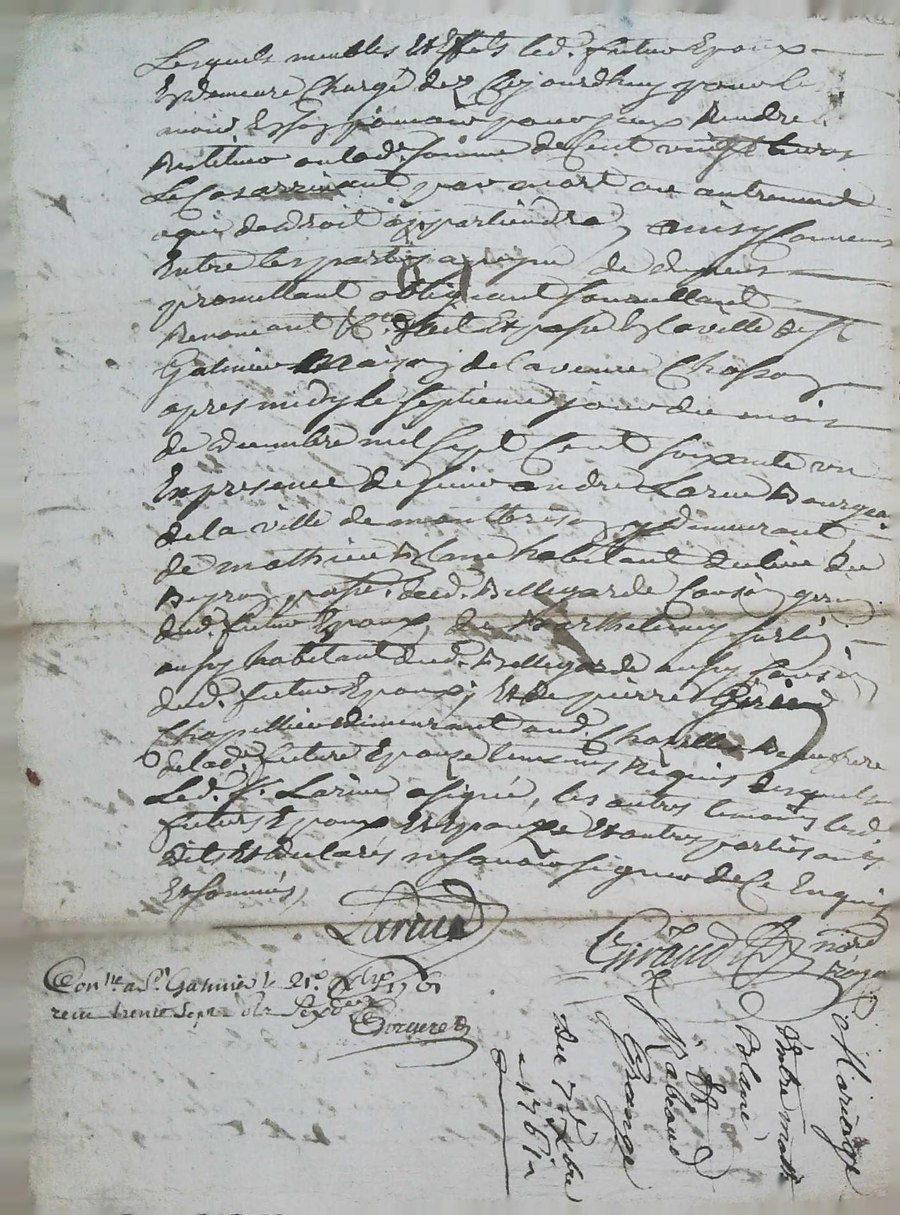 Lesquels meubles Et Effets led. futur Epoux
Est demeuré Chargé dez Cejourdhuy pour le
moin. pour Rendre
Restituer ou lad. somme de Cent vingt livres
Le Cas arrivant par mort ou autrement
a qui de Droit appartiendra, ainsy Convenu
Entre les parties a peyne de depens
promettant obligeant soumettant
Renonceant &c. fait Et passé En la ville de St
Galmier Maison de la veuve Chasson
apres midy le septieme jour du mois
de decembre mil sept Cent soixante un
En presence de sieur andré Larue Bourgeois
de la ville de montbrison y demeurant
de mathieu Blanc habitant du lieu du
parr. dud. Bellegarde Cousin germ.
dud. futur Epoux, de Barthelemy
aussy habitant dud. Bellegarde aussy Cousin
dud. futur Epoux, Et de pierre
Chapellier demeurant aud. Chazelles Beaufrere
de lad. future Epouze temoins Requis desquels
Led. Sr. Larue a signé, les autres temoins lesd.
futurs Epoux Et Epouze Et autres parties
dits Et declarés ne scavoir signer de Ce Enquis
Et sommés,
Larue
Giraud
Con.lle a St. Galmier le 21e. Xbre 1761
recu trente sept s. six den.
mariage
Entre math.
Blanc
Et
Rabaud
Grange
du 7e Xbre
1761